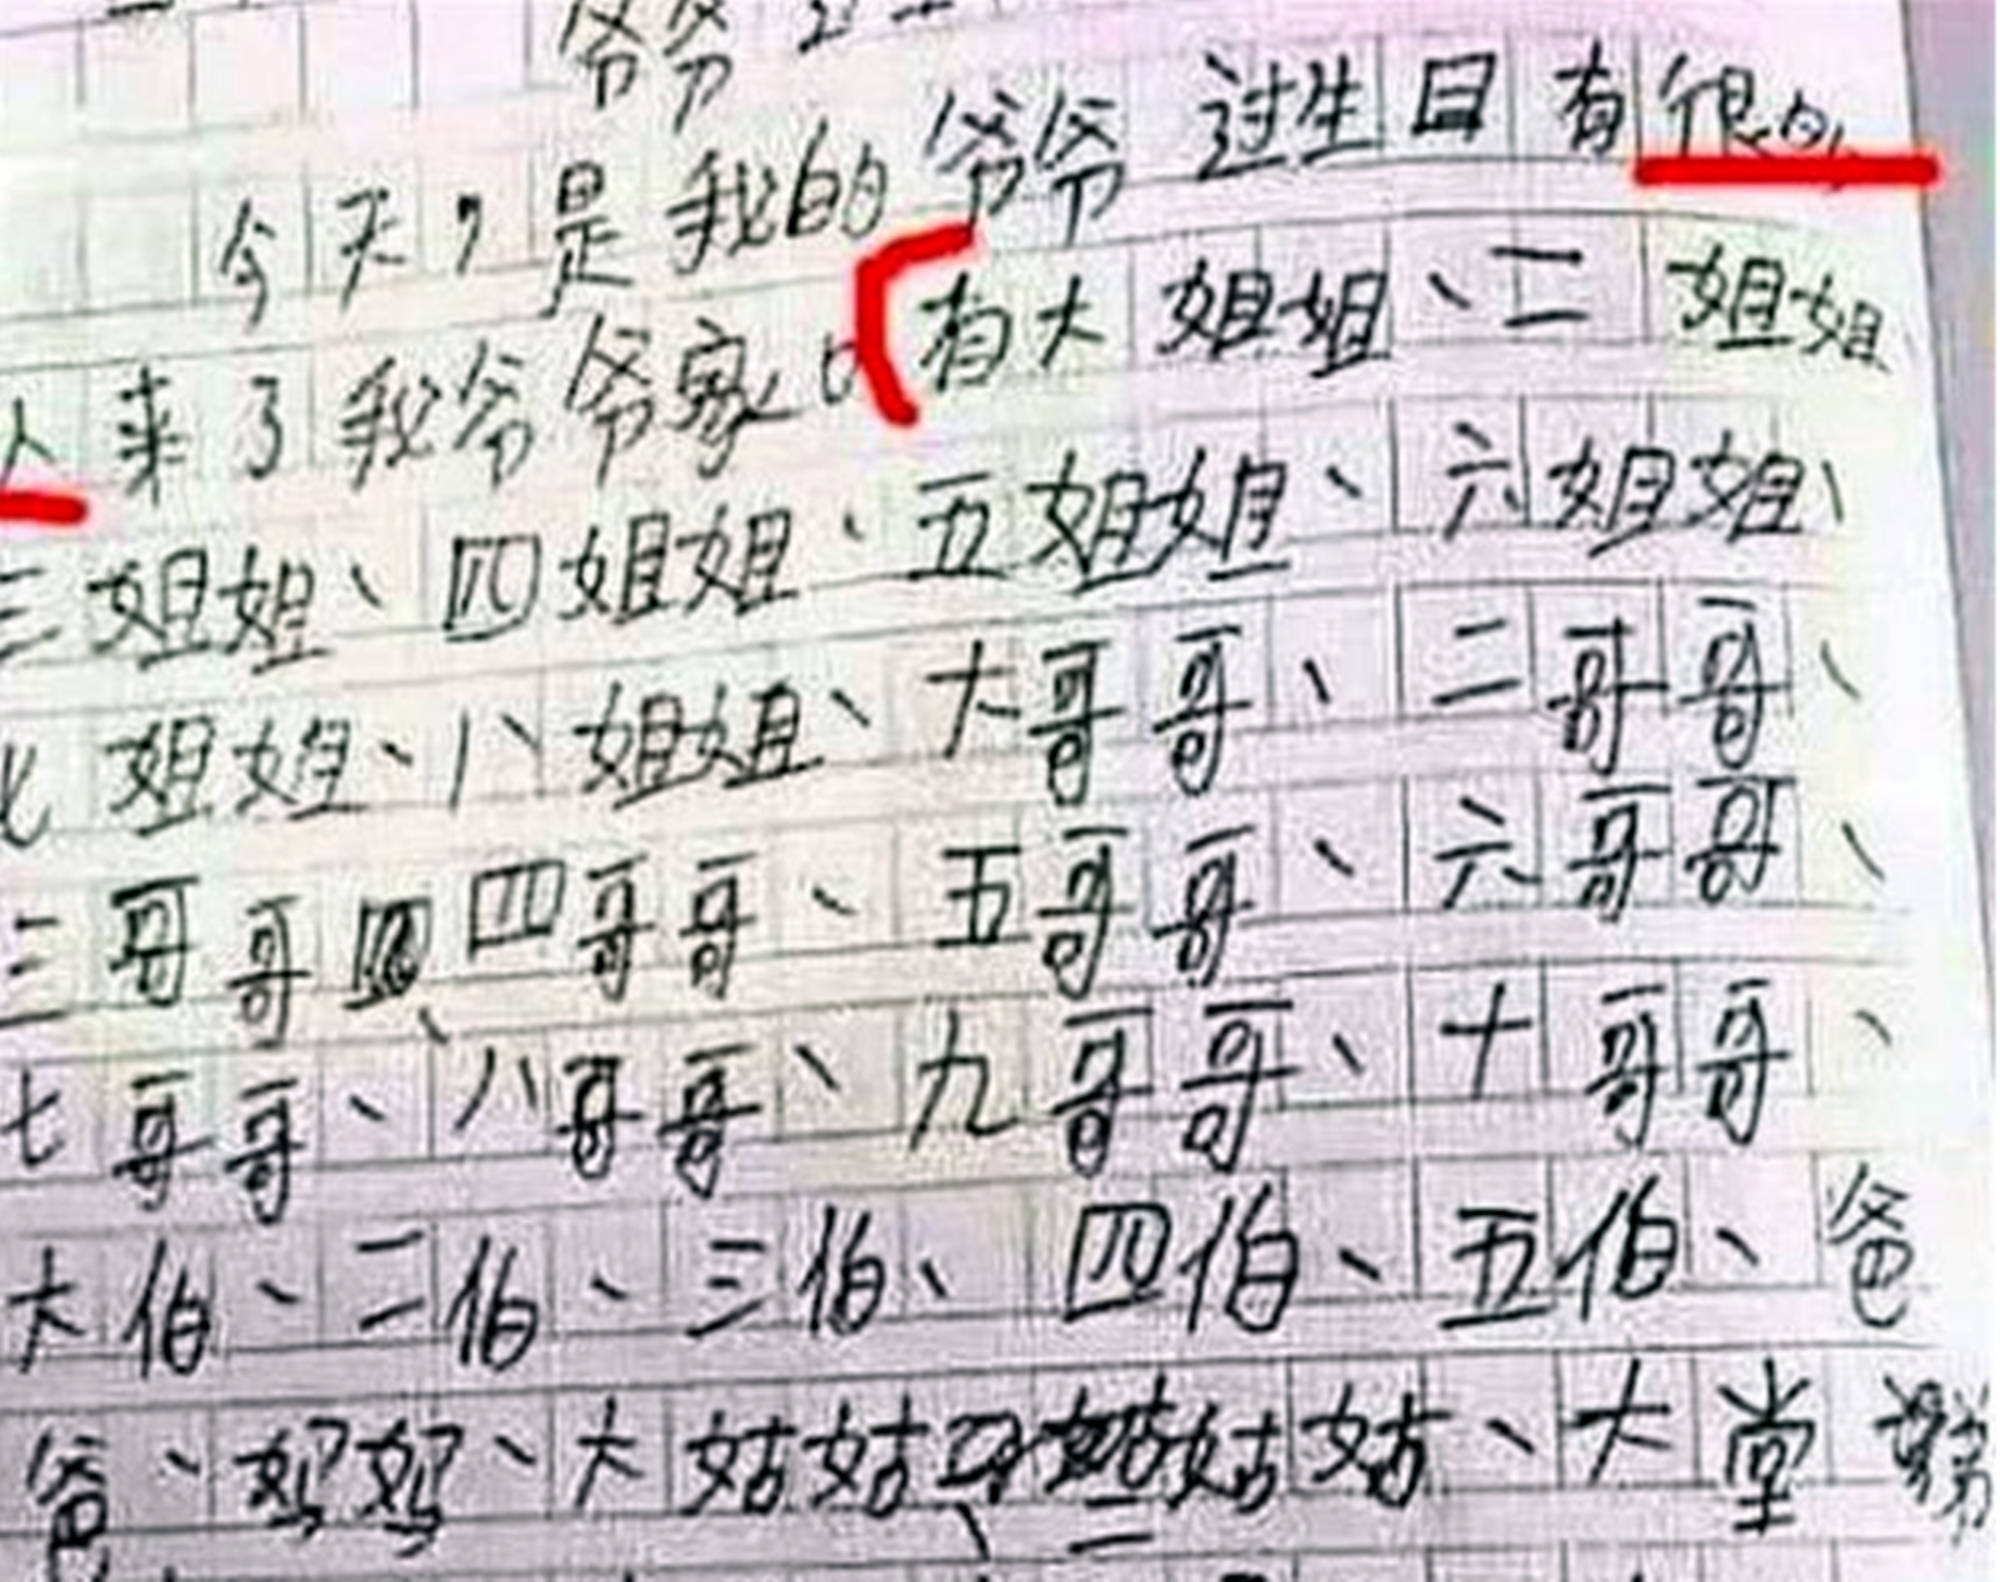 爷爷
今天,是我的爷爷过生日有很
人来了我爷爷家,有大姐姐、二姐姐
三姐姐、四姐姐、五姐姐、六姐姐、
七姐姐、八姐姐、大哥哥、二哥哥、
三哥哥、四哥哥、五哥哥、六哥哥、
七哥哥、八哥哥、九哥哥、十哥哥、
大伯、二伯、三伯、四伯、五伯、爸
爸、妈妈、大姑姑、二姑姑、大堂